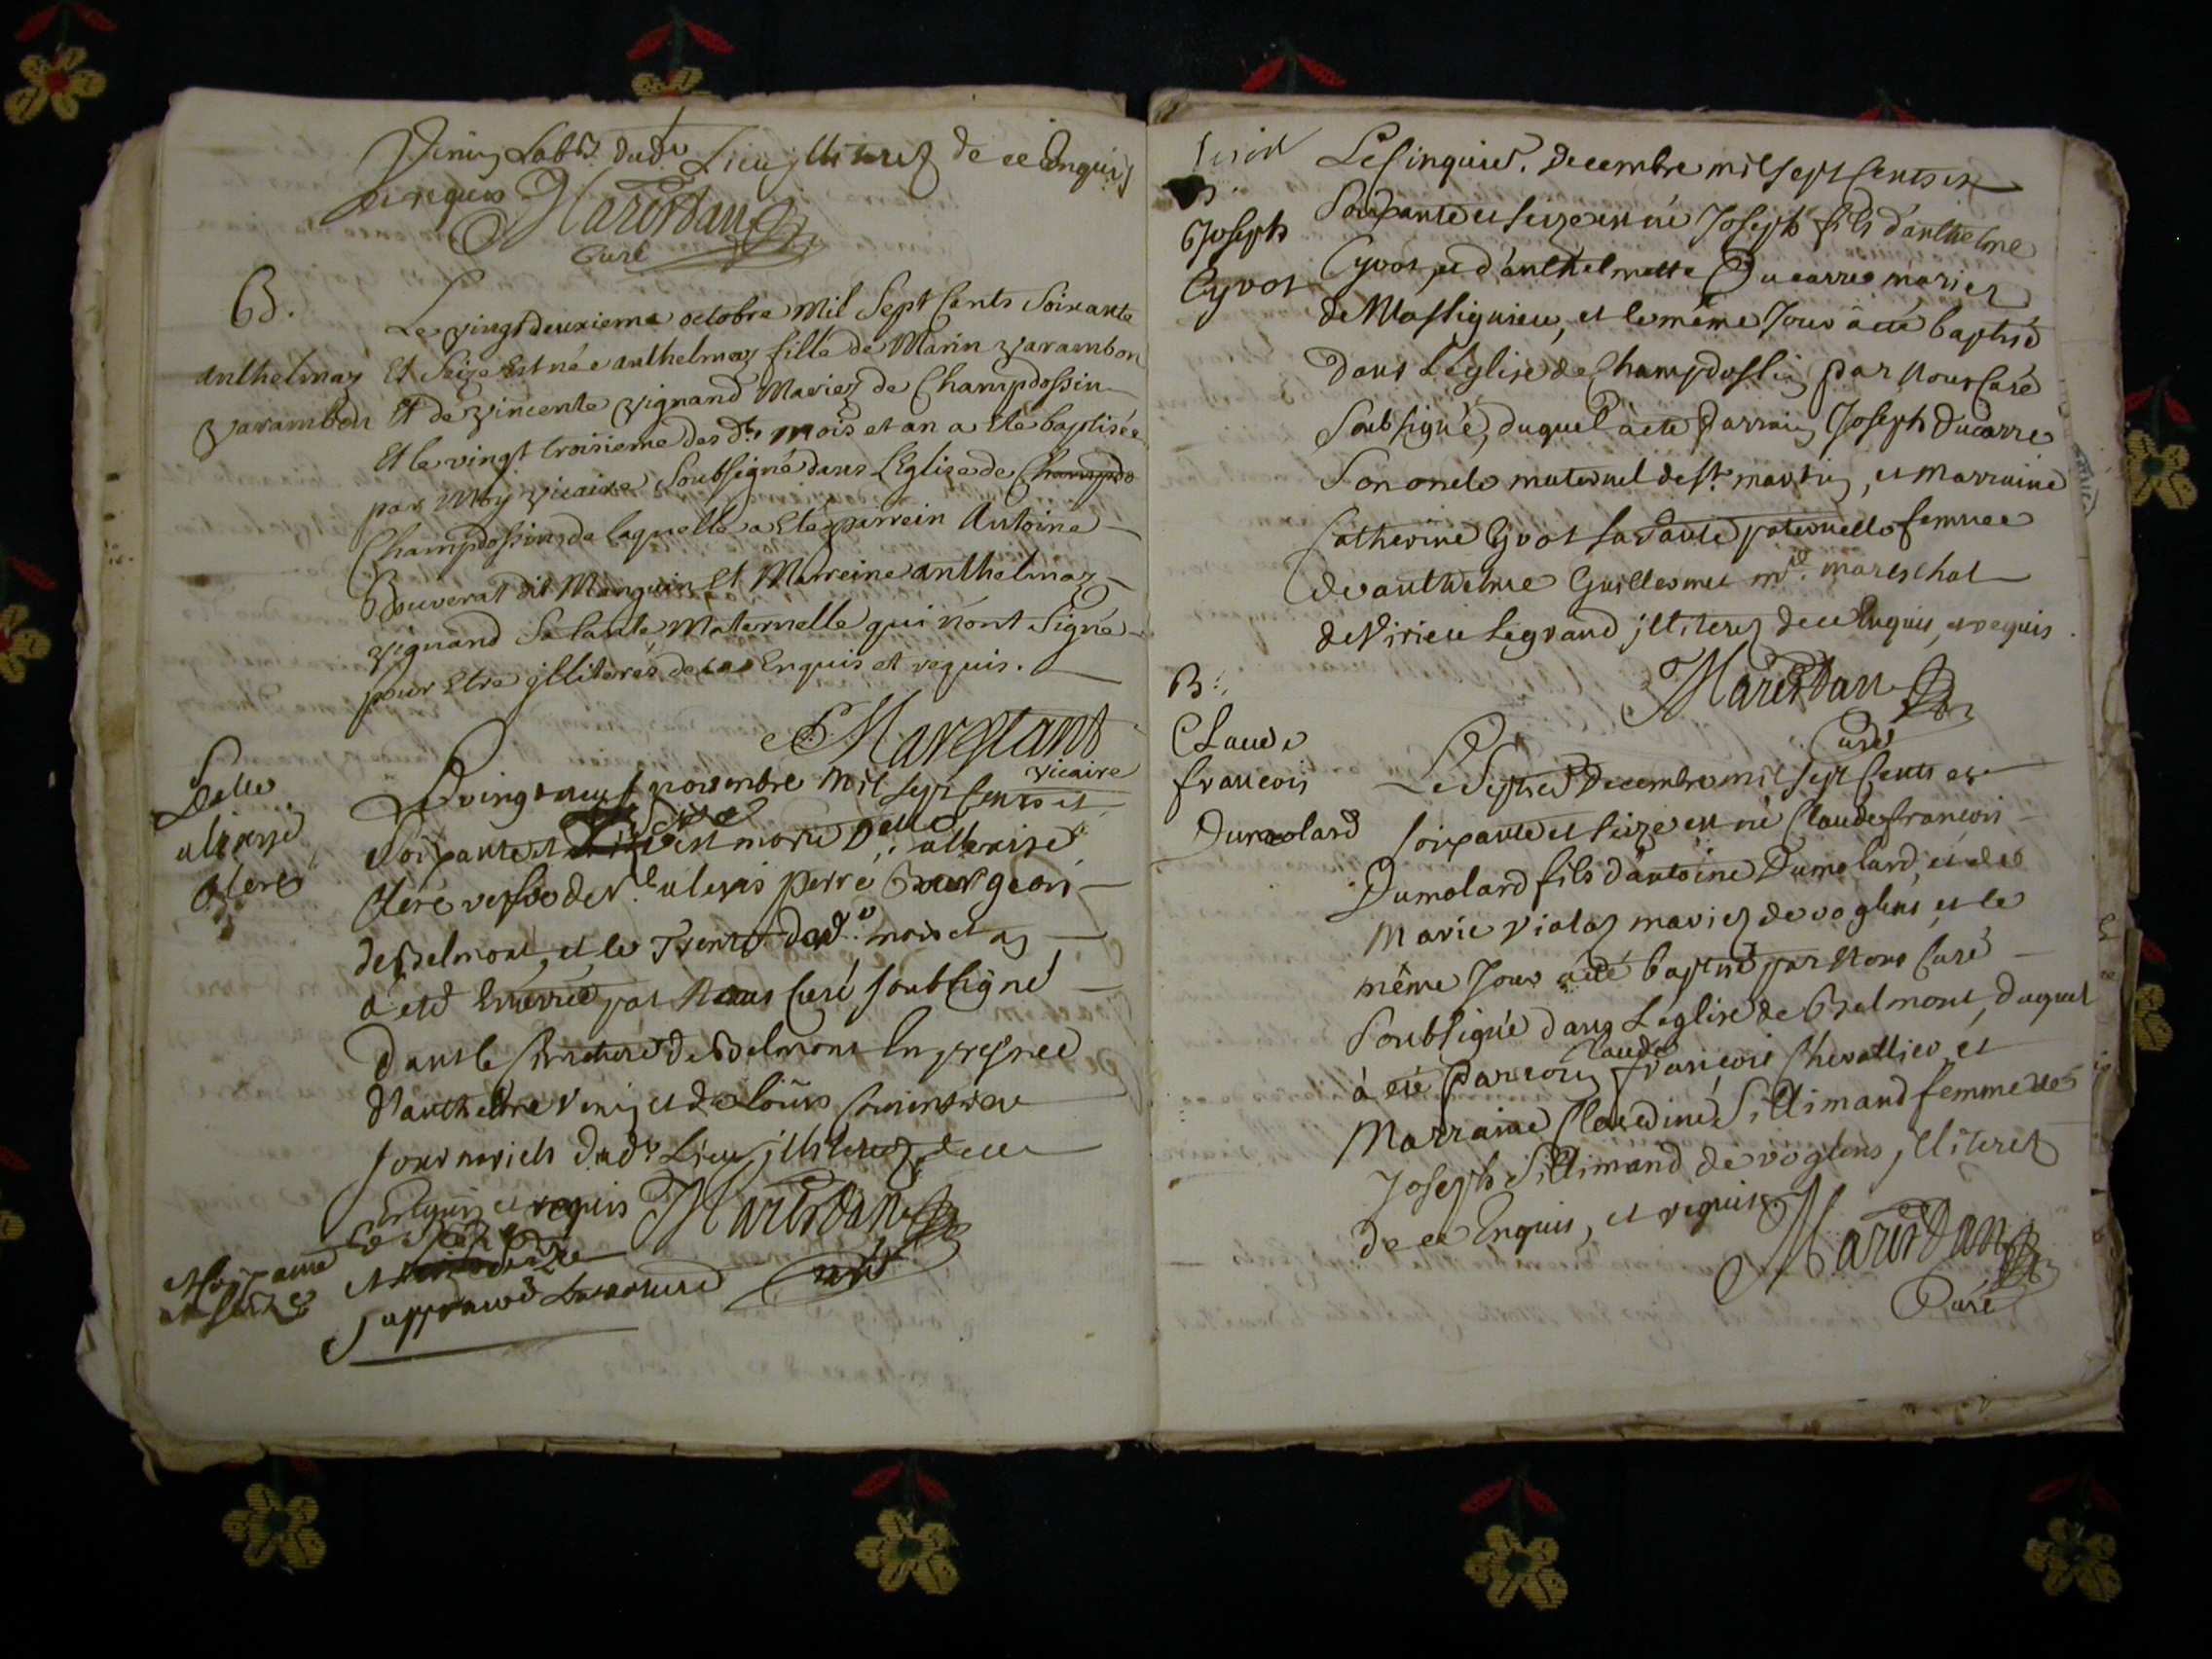 Venin Lab.r dud.t Lieu illiterez de ce Enquis
et requis Marestan
Curé
B.
Anthelmaz
Varambon
Le vingt deuxieme octobre Mil Sept Cents Soixante
Et Seize Est née anthelmaz fille de Marin Varambon
Et de Vincente Vignand Mariez de Champdossin
Et le vingt troisieme des d.ts mois et an a été baptisée
par Moy Vicaire Soubsigné dans L'Eglise de Champdo
Champdossin, de laquelle a Eté pirrein Antoine
Bouverat dit Manguin Et Marreine anthelmaz
Vignand Sa tante Maternelle qui n'ont Signé
pour Etre illiterés de ce Enquis et requis.
Marestant
Vicaire
Le vingt neuf novembre mil sept Cents et
Soixante et Seize est morte D.elle
veufve de S.r alexis perre Bourgeois
de Belmont, et le Trente dud.t mois et an
a eté Enterrée par Nous Curé soubsigné
dans le Cimetiere de Belmont En presence
d'anthelme Venin et de Louis
dud.t Lieu illiterez de ce
Enquis et requis Marestan
Curé
et soixante
et seize
et seize
approuvé
B.
Joseph
Cyvot
Le Cinquie.e Decembre mil sept Cents et
Soixante et Seize est né Joseph fils d'anthelme
Cyvot, et d'anthelmette Ducarre mariez
de Massignieu, et le même Jour à eté baptisé
dans L'église de Champdossin par Nous Curé
Soubsigné, duquel à eté Parrain Joseph Ducarre
Son oncle maternel de S.t martin, et Marraine
Catherine Cyvot sa Tante paternelle femme
de anthelme Guillermet m.d mareschal
de Virieu Legrand illiterez de ce Enquis, et requis
Marestan
Curé
B.
Claude
francois
Dumolard
Le Sept.e Decembre mil sept Cents et
soixante et Seize est né Claude francois
Dumolard fils d'antoine Dumolard, et de
Marie Violaz mariez de voglens, et le
même Jour à eté baptisé par Nous Curé
Soubsigné dans L'église de Belmont, duquel
à eté Parrain Claude francois Chevallier, et
Marraine Claudine Sillimand femme de
Joseph Sillimand de voglens, illiterez
de ce Enquis, et requis. Marestan
Curé